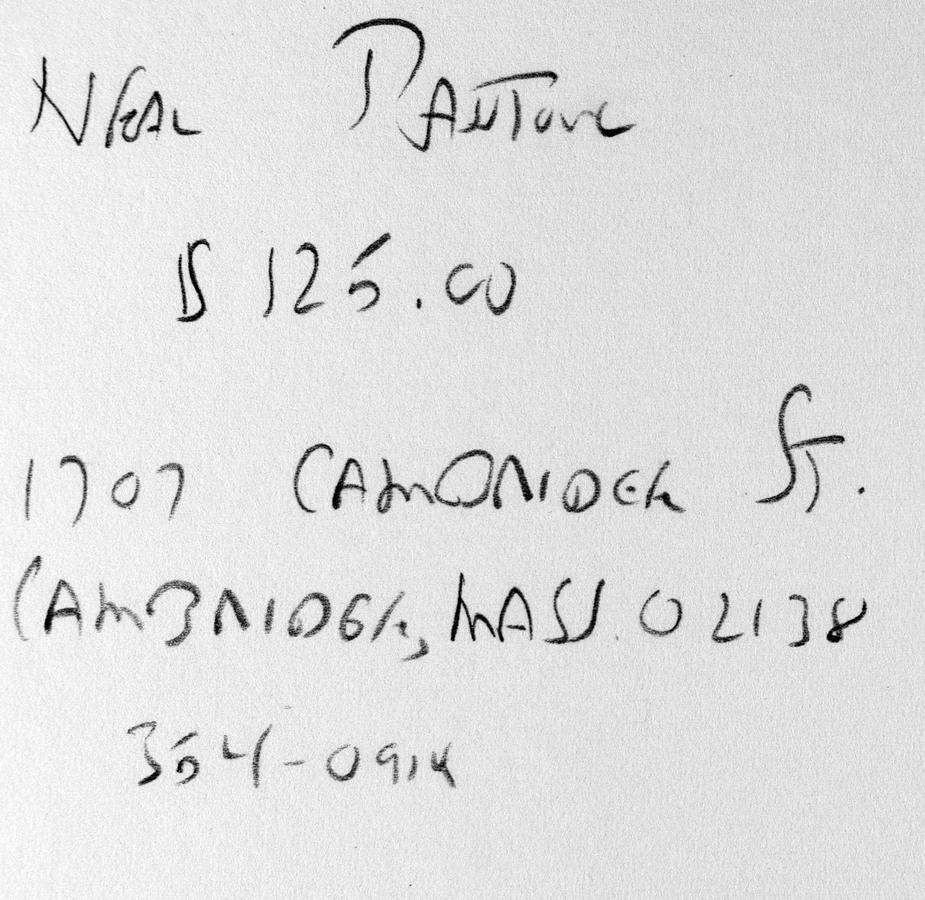 NEAL RANTOUL
$ 125.00
1707 CAMBRIDGE ST.
CAMBRIDGE, MASS. 02138
354-0914